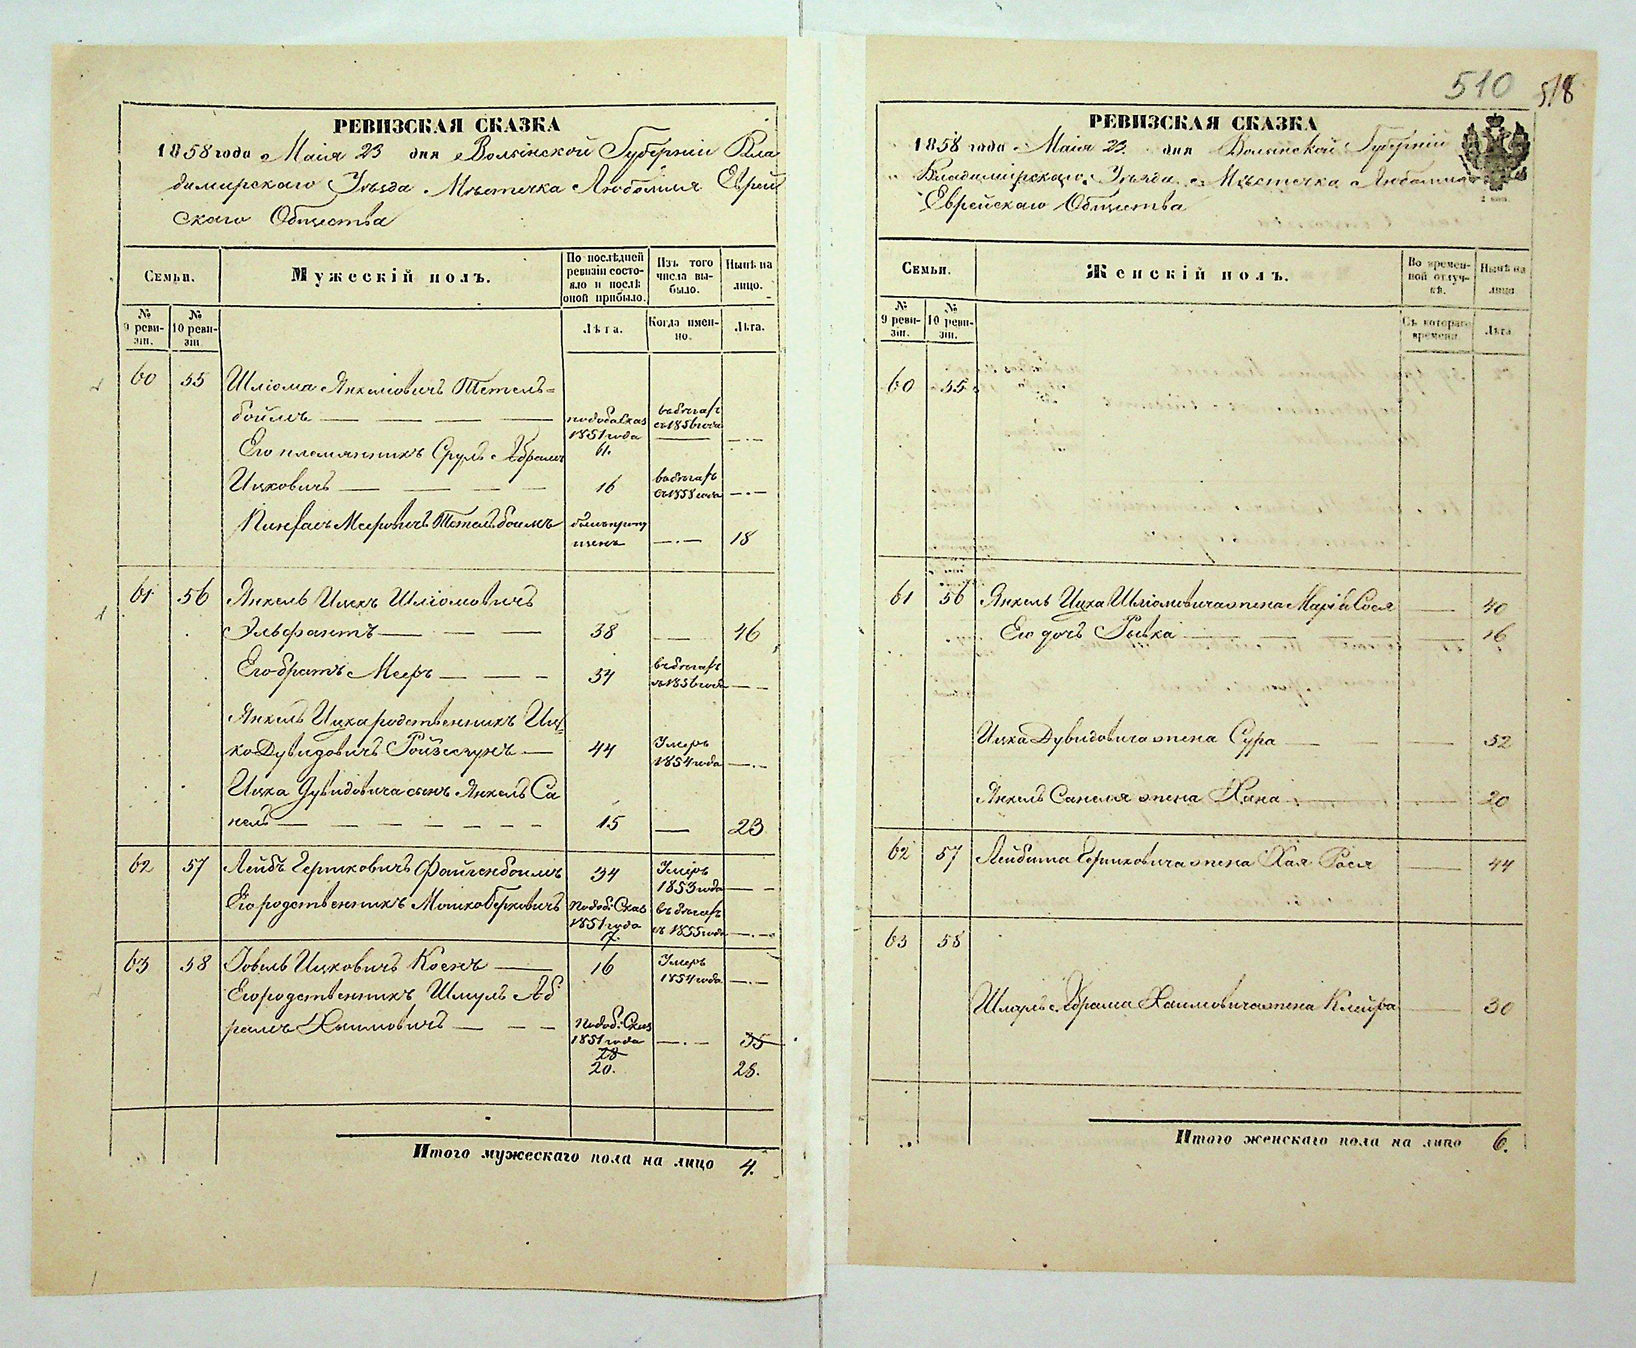 510 518
РЕВИЗСКАЯ СКАЗКА
1858 года Маія 23 дня Волынской Губерніи Вла
димирскаго Уѣзда Мѣстечка Любомля Еврей
скаго Общества
Семьи.
Мужескій полъ.
По послѣдней ревизіи состояло и послѣ оной прибыло.
Изъ того числа выбыло.
Нынѣ на лицо.
№ 9 ревизіи.
№ 10 ревизіи
Лѣта.
Когда именно.
Лѣта.
60 55 Шліома Янкеліовичъ Тетель=
боймъ — — — — по доб. сказ. 1851 года 61. въ бѣгахъ съ 1856 года — . —
Его племянникъ Сруль Абрамъ
Ицковичъ — — — — 16 въ бѣгахъ съ 1858 года — . —
Пинхасъ Меіровичъ Тетельбоимъ былъ пропущенъ — . — 18
61 56 Янкель Ицекъ Шліомовичъ
Эльфантъ — — — 38 — 46
Его братъ Мееръ — — — 34 въ бѣгахъ съ 1856 года — —
Янкель Ицка родственникъ Иц=
ко Дувидовичъ Ройзецунъ — 44 Умеръ 1854 года — . —
Ицка Дувидовича сынъ Янкель Са
нель — — — — — — 15 — 23
62 57 Лейбъ Гершковичъ Файгенбоимъ 34 Умеръ 1853 года — —
Его родственникъ Мошко Берковичъ По доб. Сказ 1851 года 7. въ бѣгахъ съ 1855 года — . —
63 58 Іовель Ицковичъ Коенъ — 16 Умеръ 1854 года — . —
Его родственникъ Шмуль Аб
рамъ Хаимовичъ — — — По доб. Сказ 1851 года 28 20. — . — 35 28.
Итого мужескаго пола на лицо 4.
РЕВИЗСКАЯ СКАЗКА
1858 года Маія 23. дня Волынской Губерніи
Владимирскаго Уѣзда Мѣстечка Любомля
Еврейскаго Общества
Семьи.
Женскій полъ.
Во временной отлучкѣ.
Нынѣ на лицо
№ 9 ревизіи.
№ 10 ревизіи.
Съ котораго времени.
Лѣта
60 55
61 56 Янкель Ицка Шліомовича жена Марія Сося — 40
Его дочь Рывка — — — 16
Ицка Дувидовича жена Сура — — 52
Янкель Санеля жена Хана — — 20
62 57 Лейбиша Гершковича жена Хая Рася — 44
63 58
Шмуль Абрама Хаимовича жена Клейра — 30
Итого женскаго пола на лицо 6.